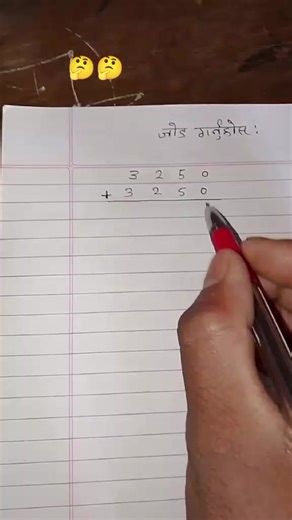 जोड गर्नुहोस :
3 2 5 0
+ 3 2 5 0